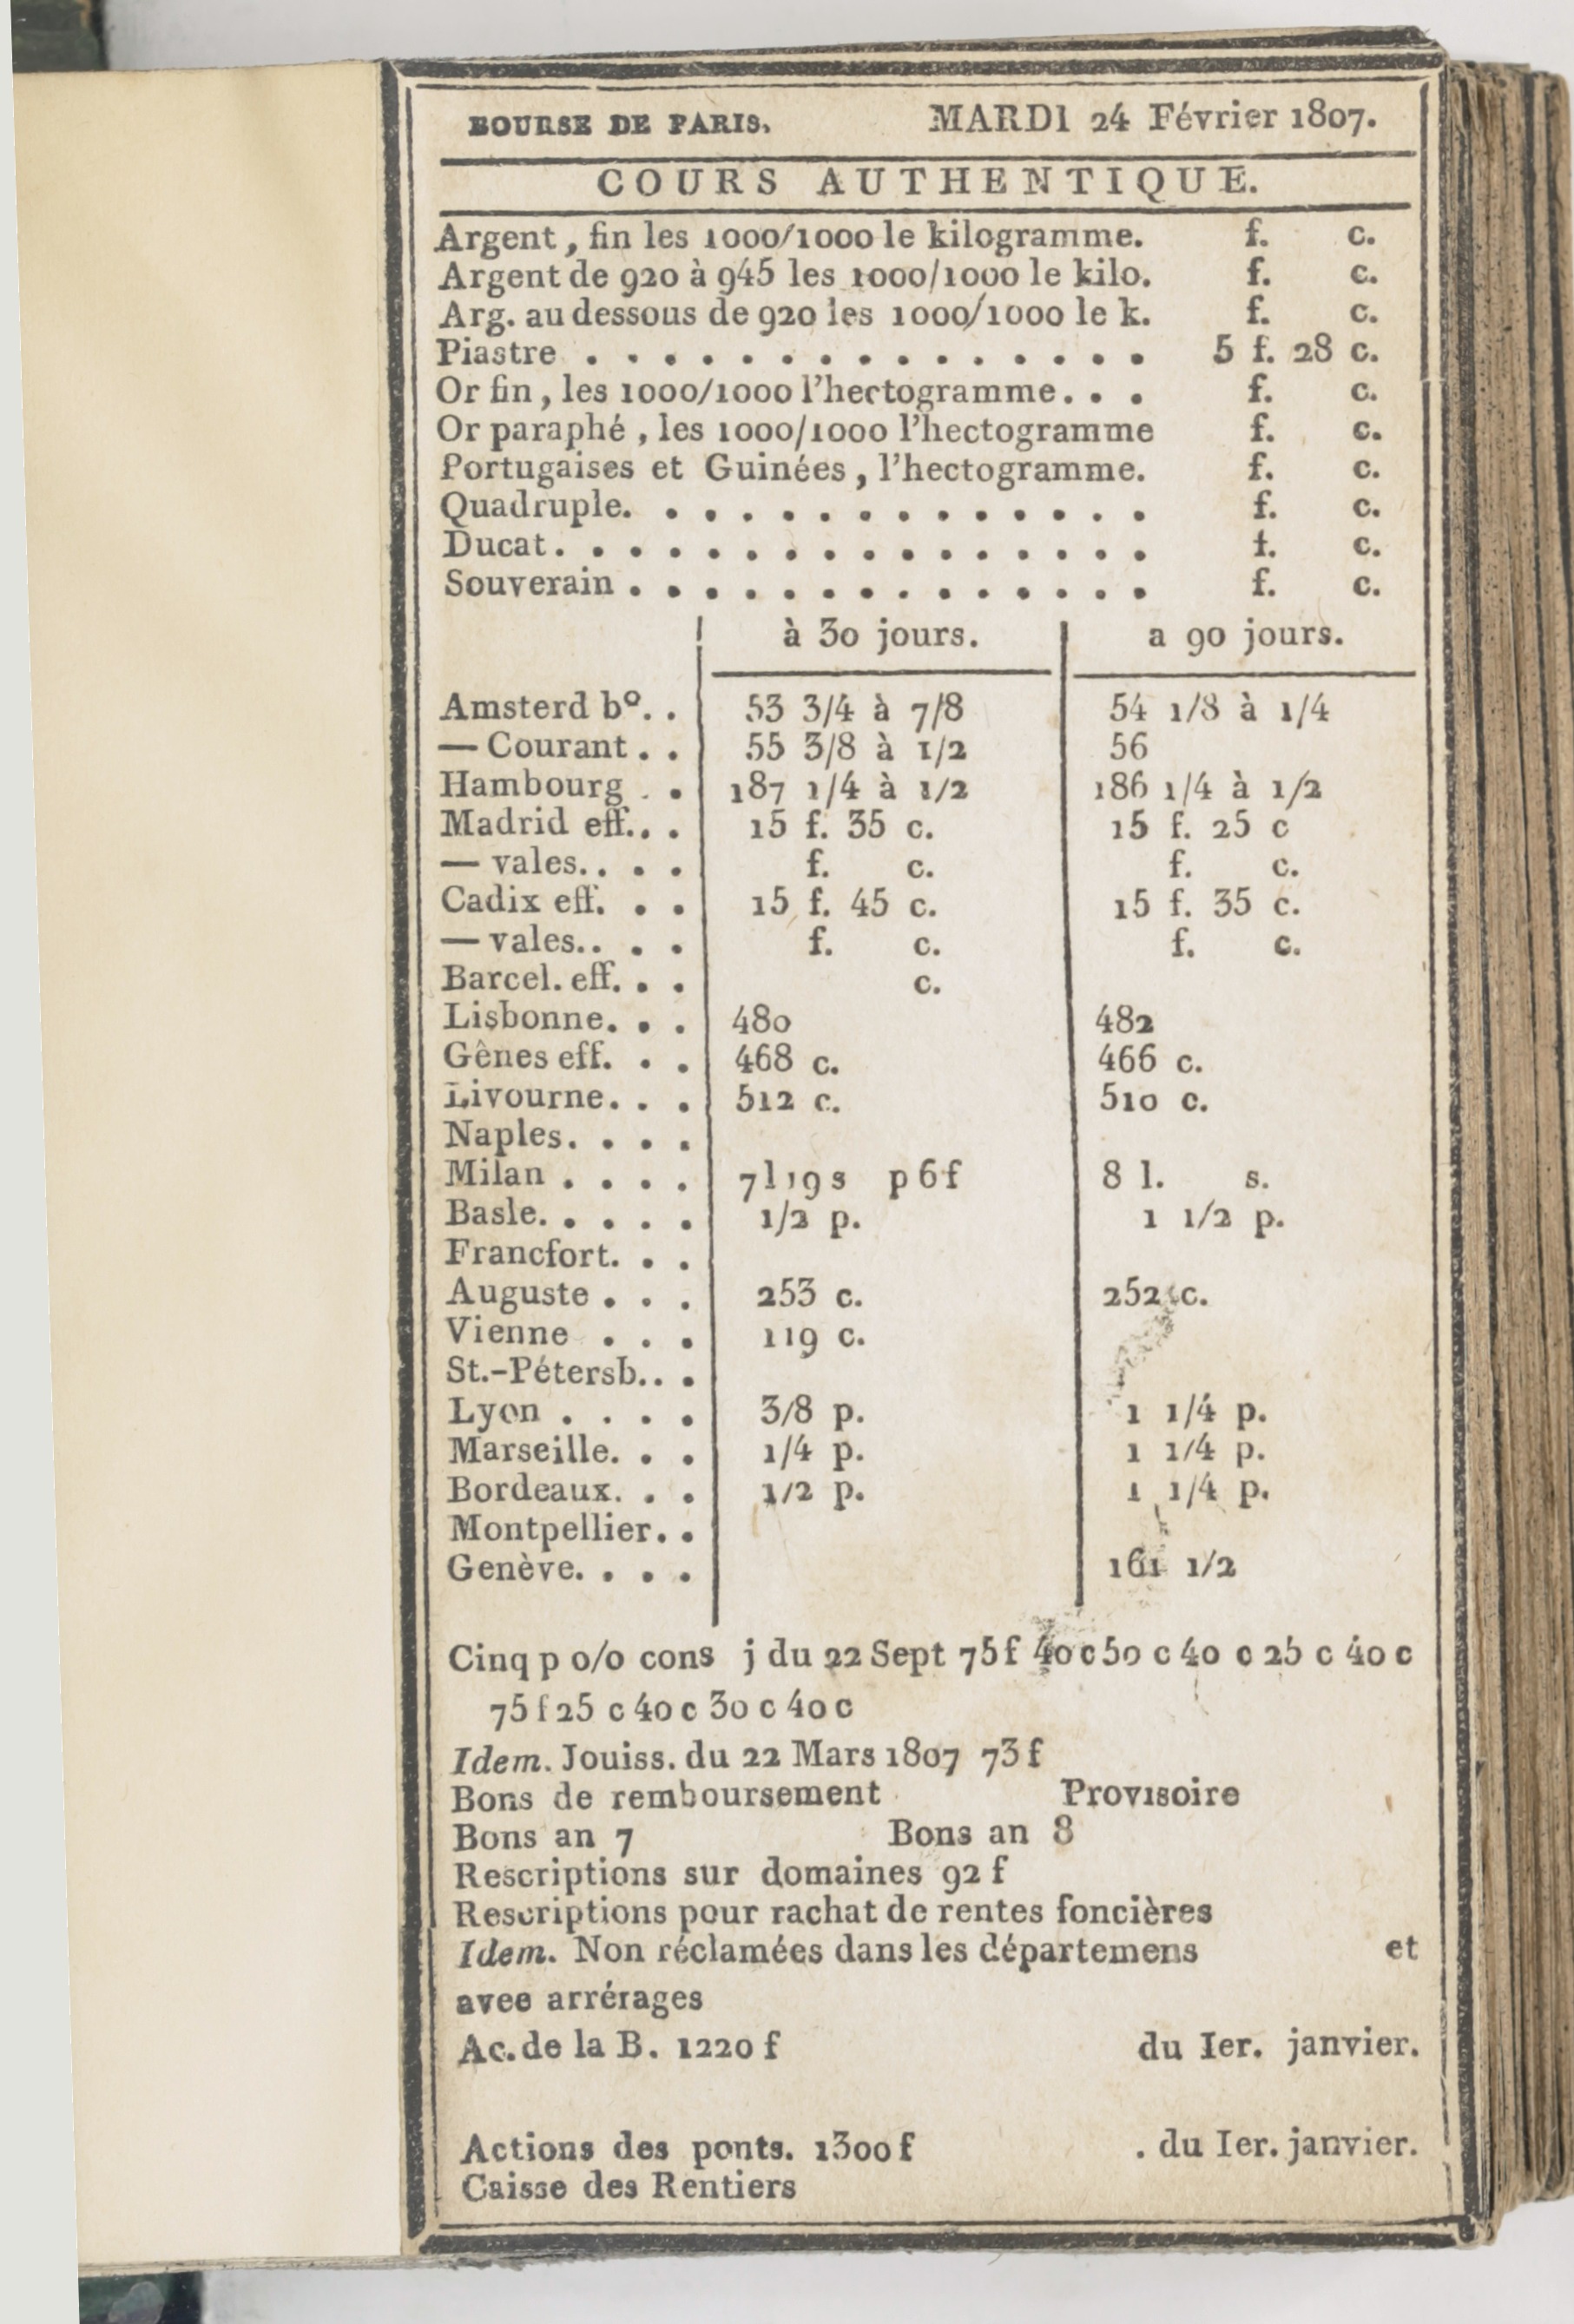 BOURSE DE PARIS. MARDI 24 Février 1807.
COURS AUTHENTIQUE.
Argent, fin les 1000/1000 le kilogramme. f. c.
Argent de 920 à 945 les 1000/1000 le kilo. f. c.
Arg. au dessous de 920 les 1000/1000 le k. f. c.
Piastre . . . . . . . . . . . . . . . 5 f. 28 c.
Or fin, les 1000/1000 l'hectogramme. . . f. c.
Or paraphé, les 1000/1000 l'hectogramme f. c.
Portugaises et Guinées, l'hectogramme. f. c.
Quadruple. . . . . . . . . . . . . . f. c.
Ducat. . . . . . . . . . . . . . . . f. c.
Souverain . . . . . . . . . . . . . . f. c.
à 30 jours. a 90 jours.
Amsterd bº. . 53 3/4 à 7/8 54 1/8 à 1/4
— Courant . . 55 3/8 à 1/2 56
Hambourg . . 187 1/4 à 1/2 186 1/4 à 1/2
Madrid eff.. . 15 f. 35 c. 15 f. 25 c
— vales.. . . f. c. f. c.
Cadix eff. . . 15 f. 45 c. 15 f. 35 c.
— vales.. . . f. c. f. c.
Barcel. eff. . . c.
Lisbonne. . . 480 482
Gênes eff. . . 468 c. 466 c.
Livourne. . . 512 c. 510 c.
Naples. . . .
Milan . . . . 7 l 19 s p 6 f 8 l. s.
Basle. . . . . 1/2 p. 1 1/2 p.
Francfort. . .
Auguste . . . 253 c. 252 c.
Vienne . . . 119 c.
St.-Pétersb.. .
Lyon . . . . 3/8 p. 1 1/4 p.
Marseille. . . 1/4 p. 1 1/4 p.
Bordeaux. . . 1/2 p. 1 1/4 p.
Montpellier. .
Genève. . . . 161 1/2
Cinq p o/o cons j du 22 Sept 75 f 40 c 50 c 40 c 25 c 40 c
75 f 25 c 40 c 30 c 40 c
Idem. Jouiss. du 22 Mars 1807 73 f
Bons de remboursement Provisoire
Bons an 7 Bons an 8
Rescriptions sur domaines 92 f
Rescriptions pour rachat de rentes foncières
Idem. Non réclamées dans les départemens et
avec arrérages
Ac. de la B. 1220 f du Ier. janvier.
Actions des ponts. 1300 f . du Ier. janvier.
Caisse des Rentiers